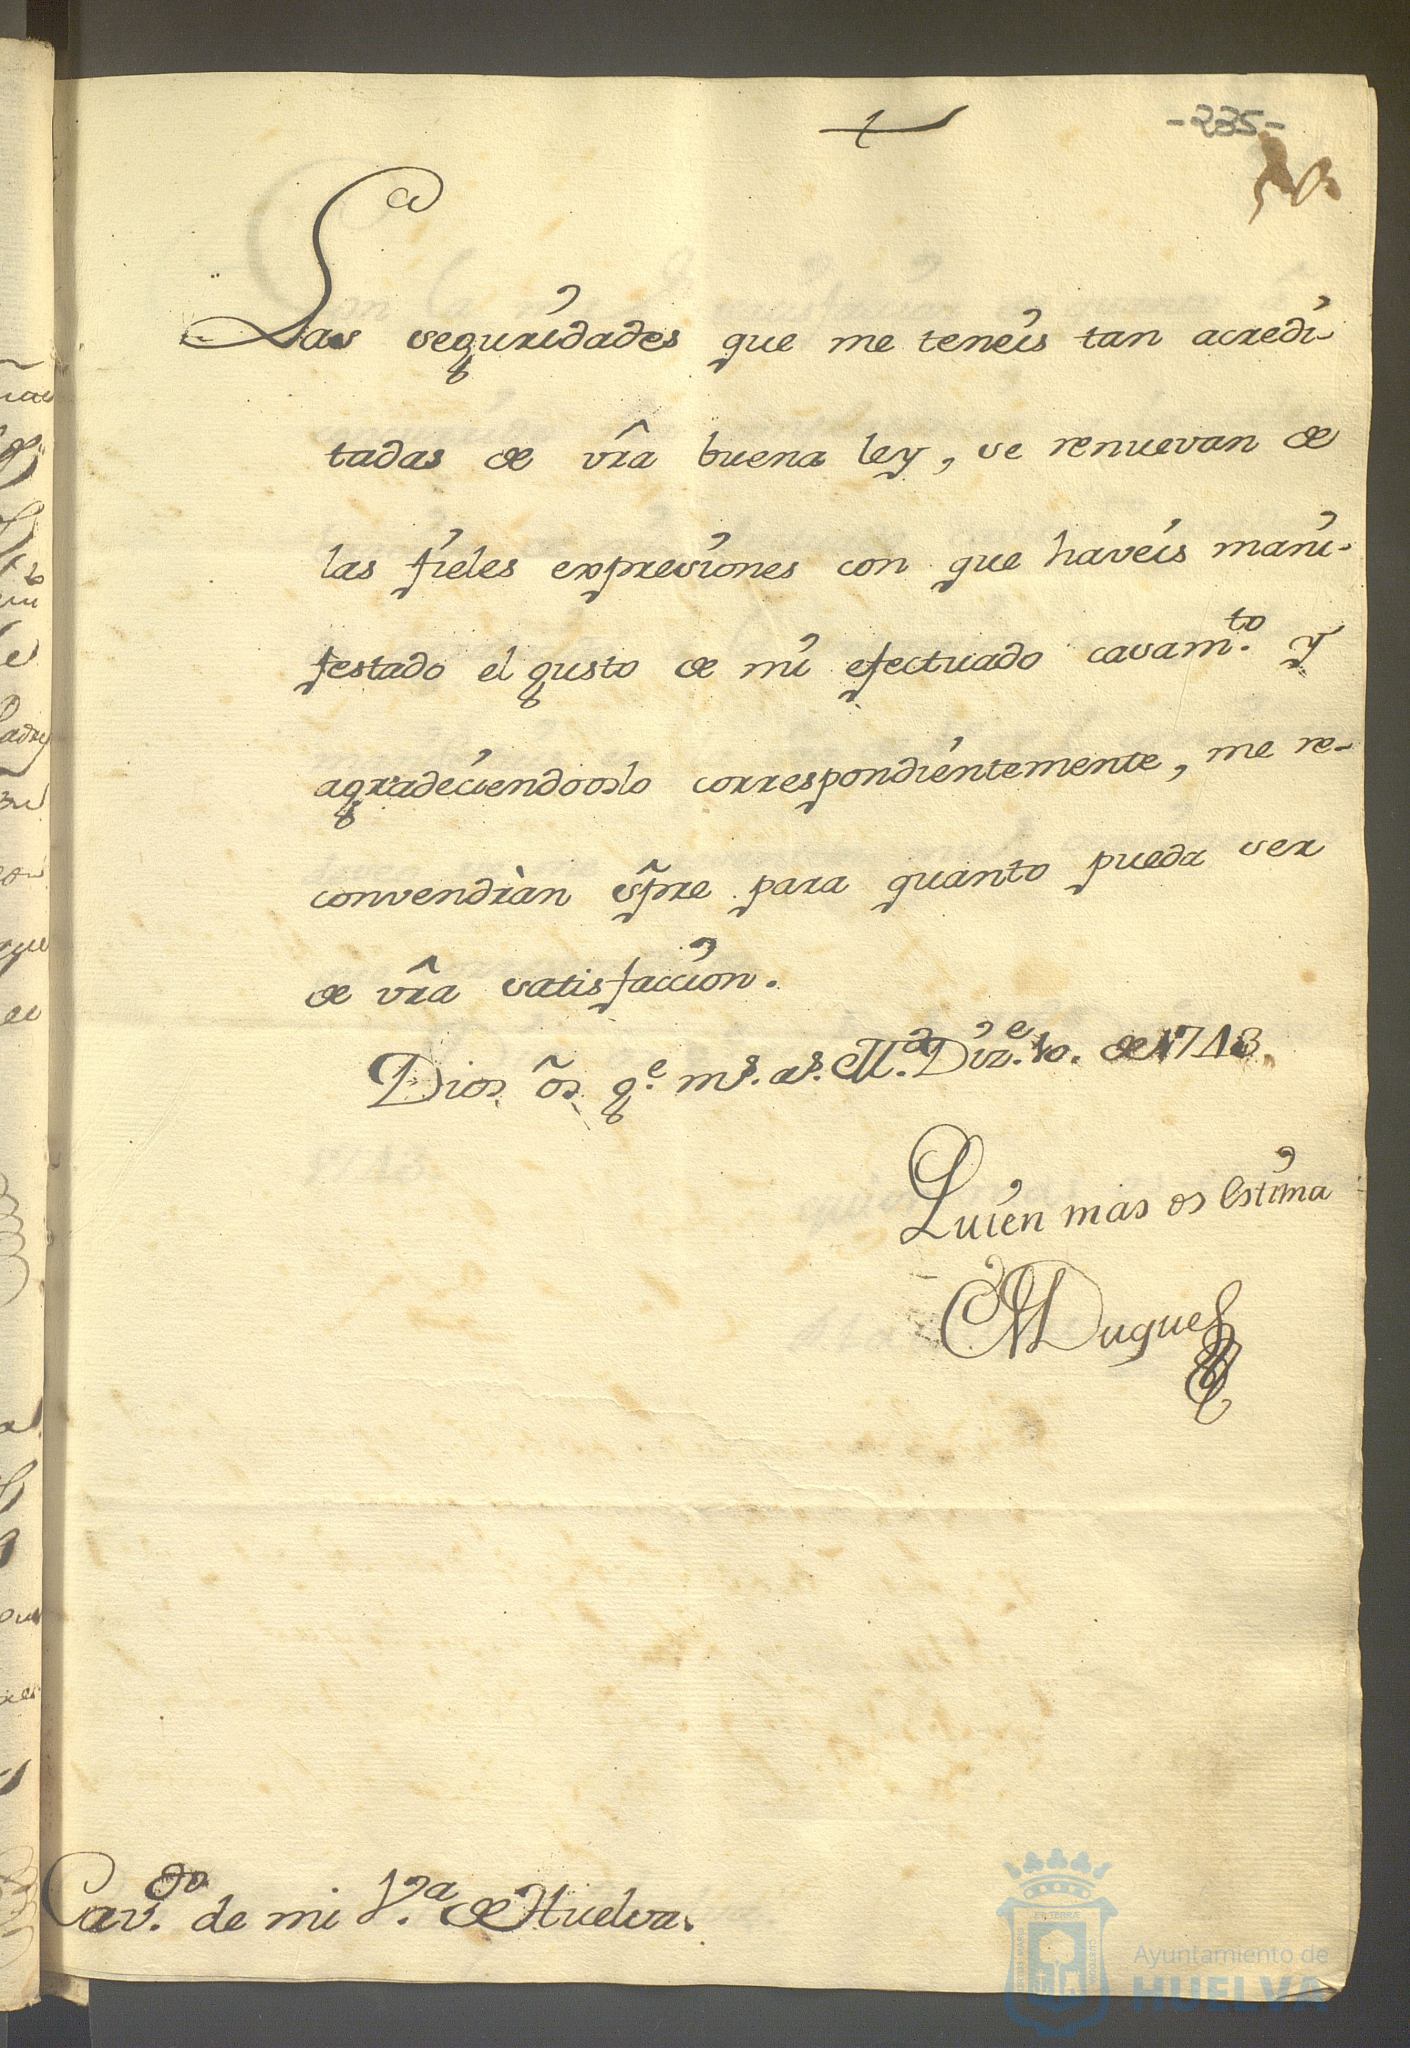 -235-
Las seguridades que me teneis tan acredi-
tadas de vrã buena ley, se renuevan de
las fieles expresiones con que haveis mani-
festado el gusto de mi efectuado casam.to y
agradeciendooslo correspondientemente, me re-
convendràn sp̃re para quanto pueda ser
de vrã satisfaccion.
Dios õs g.e m.s a.s M.d Diz.e 10. de 1713.
Quien mas os estima
Duque
Cav.do de mi V.a de Huelva.
Ayuntamiento de
HUELVA